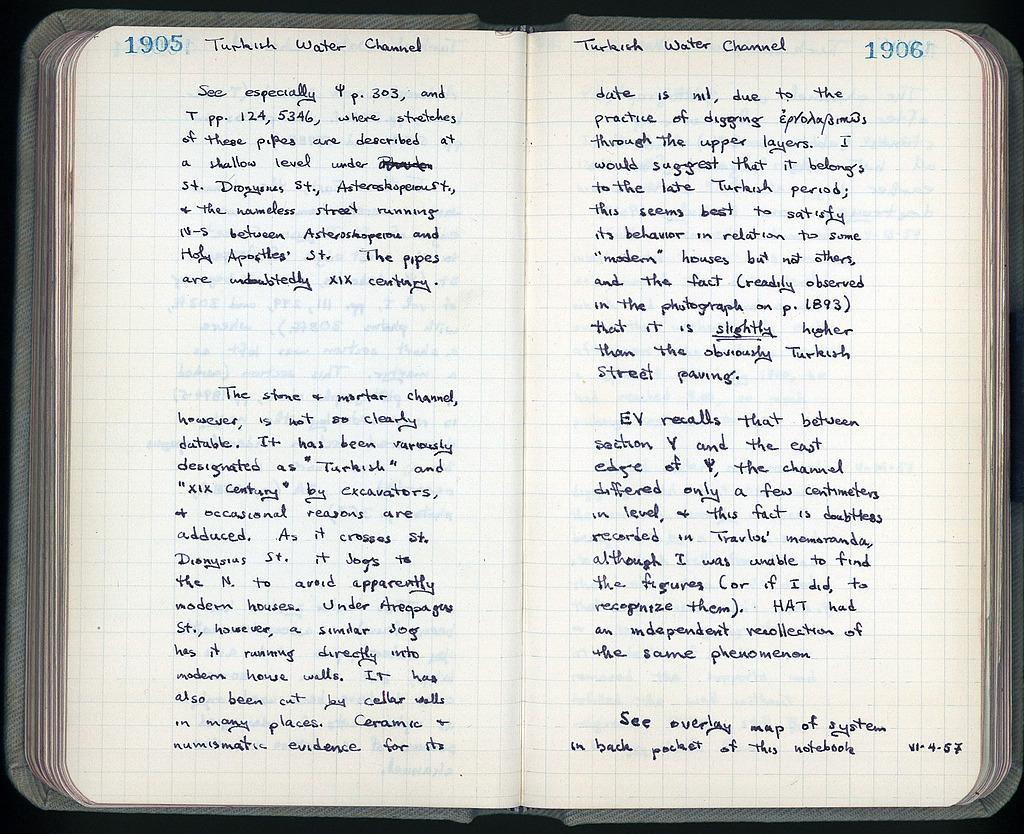 1905 Turkish Water Channel
See especially Ψ p. 303, and
T pp. 124, 5346, where stretches
of these pipes are described at
a shallow level under
St. Dionysius St., Asteroskopeiou St.,
& the nameless street running
N-S between Asteroskopeiou and
Holy Apostles' St. The pipes
are undoubtedly XIX century.
The stone & mortar channel,
however, is not so clearly
datable. It has been variously
designated as "Turkish" and
"XIX Century" by excavators,
& occasional reasons are
adduced. As it crosses St.
Dionysius St. it jogs to
the N. to avoid apparently
modern houses. Under Areopagus
St., however, a similar jog
has it running directly into
modern house walls. It has
also been cut by cellar walls
in many places. Ceramic &
numismatic evidence for its
Turkish Water Channel 1906
date is nil, due to the
practice of digging ἐργολαβικῶς
through the upper layers. I
would suggest that it belongs
to the late Turkish period;
this seems best to satisfy
its behavior in relation to some
"modern" houses but not others,
and the fact (readily observed
in the photograph on p. 1893)
that it is slightly higher
than the obviously Turkish
Street paving.
EV recalls that between
section Y and the east
edge of Ψ, the channel
differed only a few centimeters
in level, & this fact is doubtless
recorded in Travlos' memoranda,
although I was unable to find
the figures (or if I did, to
recognize them). HAT had
an independent recollection of
the same phenomenon
See overlay map of system
in back pocket of this notebook VI-4-57